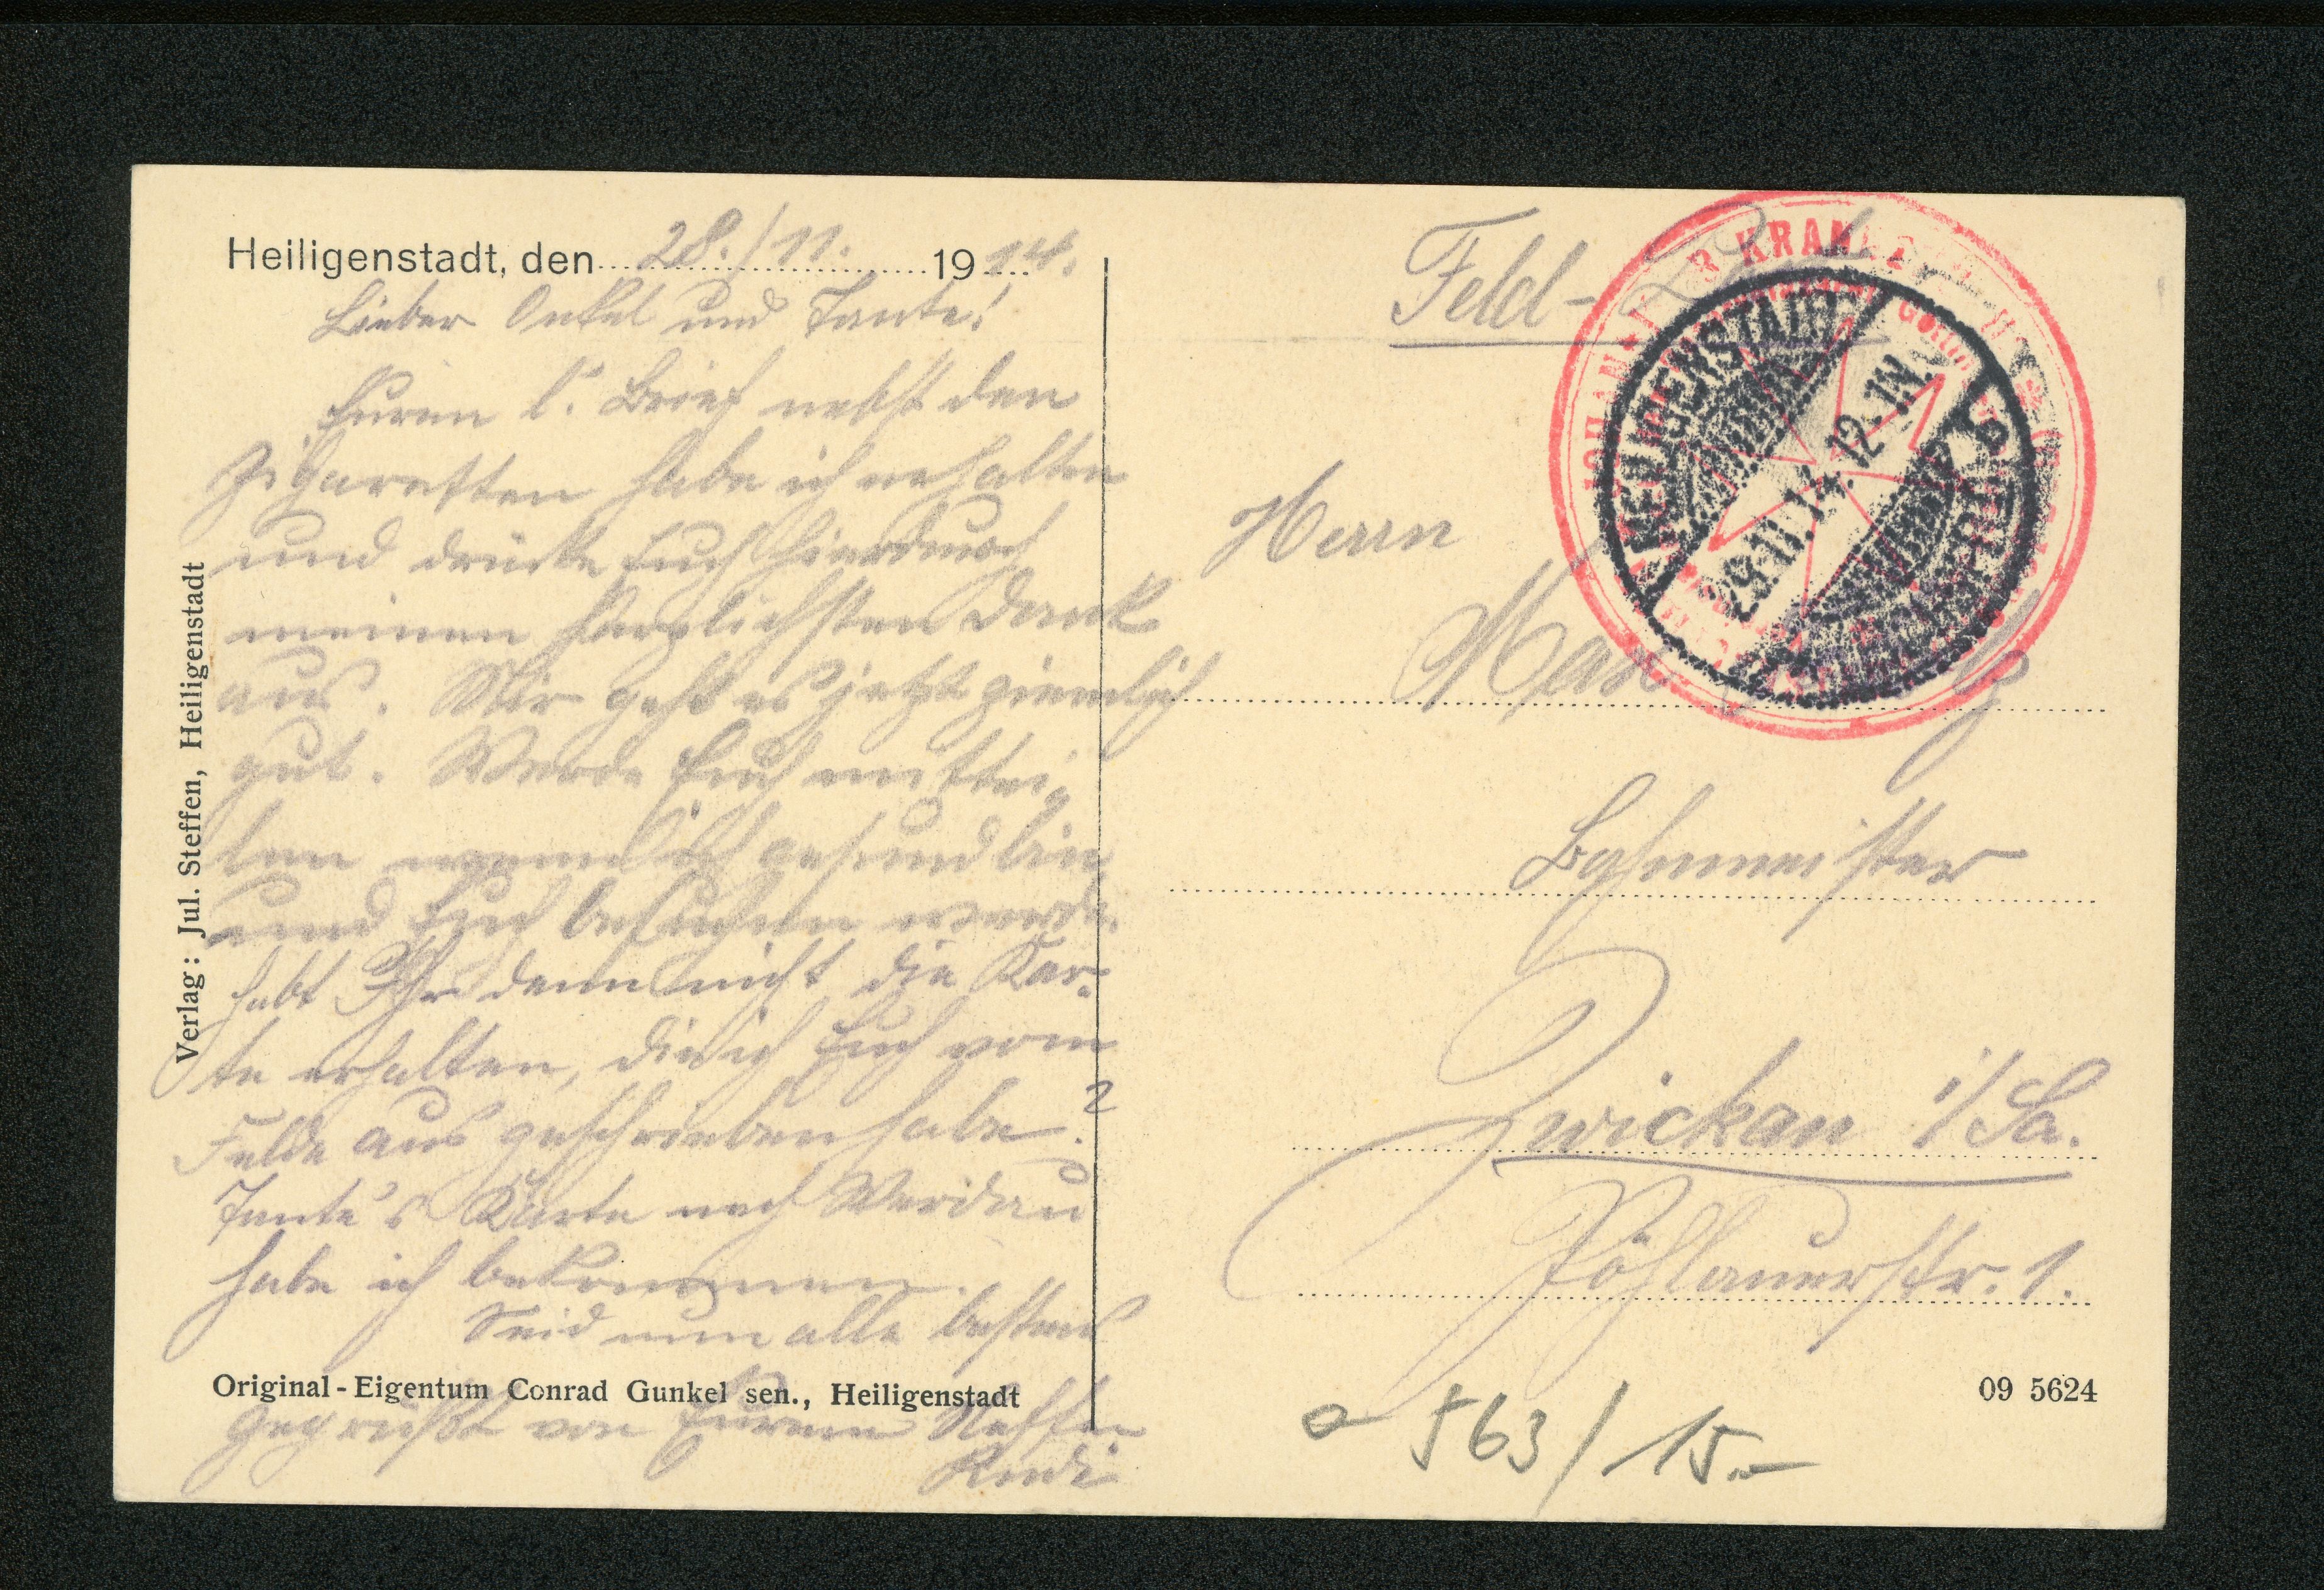 Heiligenstadt, den 28./11. 1914.
Lieber Onkel und Tante!
Euren l. Brief nebst den
Zigaretten habe ich erhalten
und drücke Euch hierdurch
meinen herzlichsten Dank
aus. Mir geht es jetzt ziemlich
gut. Werde Euch mittei-
len wenn ich gesund bin
und Euch besuchen werde.
Habt Ihr denn nicht die Kar-
te erhalten, die ich Euch vom
Felde aus geschrieben habe?
Tante's Karte nach Werdau
habe ich bekommen.
Seid nun alle bestens
gegrüßt von Eurem Neffen
Rudi
Verlag: Jul. Steffen, Heiligenstadt
Original-Eigentum Conrad Gunkel sen., Heiligenstadt
Feld-
HEILIGENSTADT
29.11.14.12-1N.
Herrn
Bahnmeister
Zwickau i/Sa.
Pöhlauerstr. 1.
09 5624
a 563/15.-